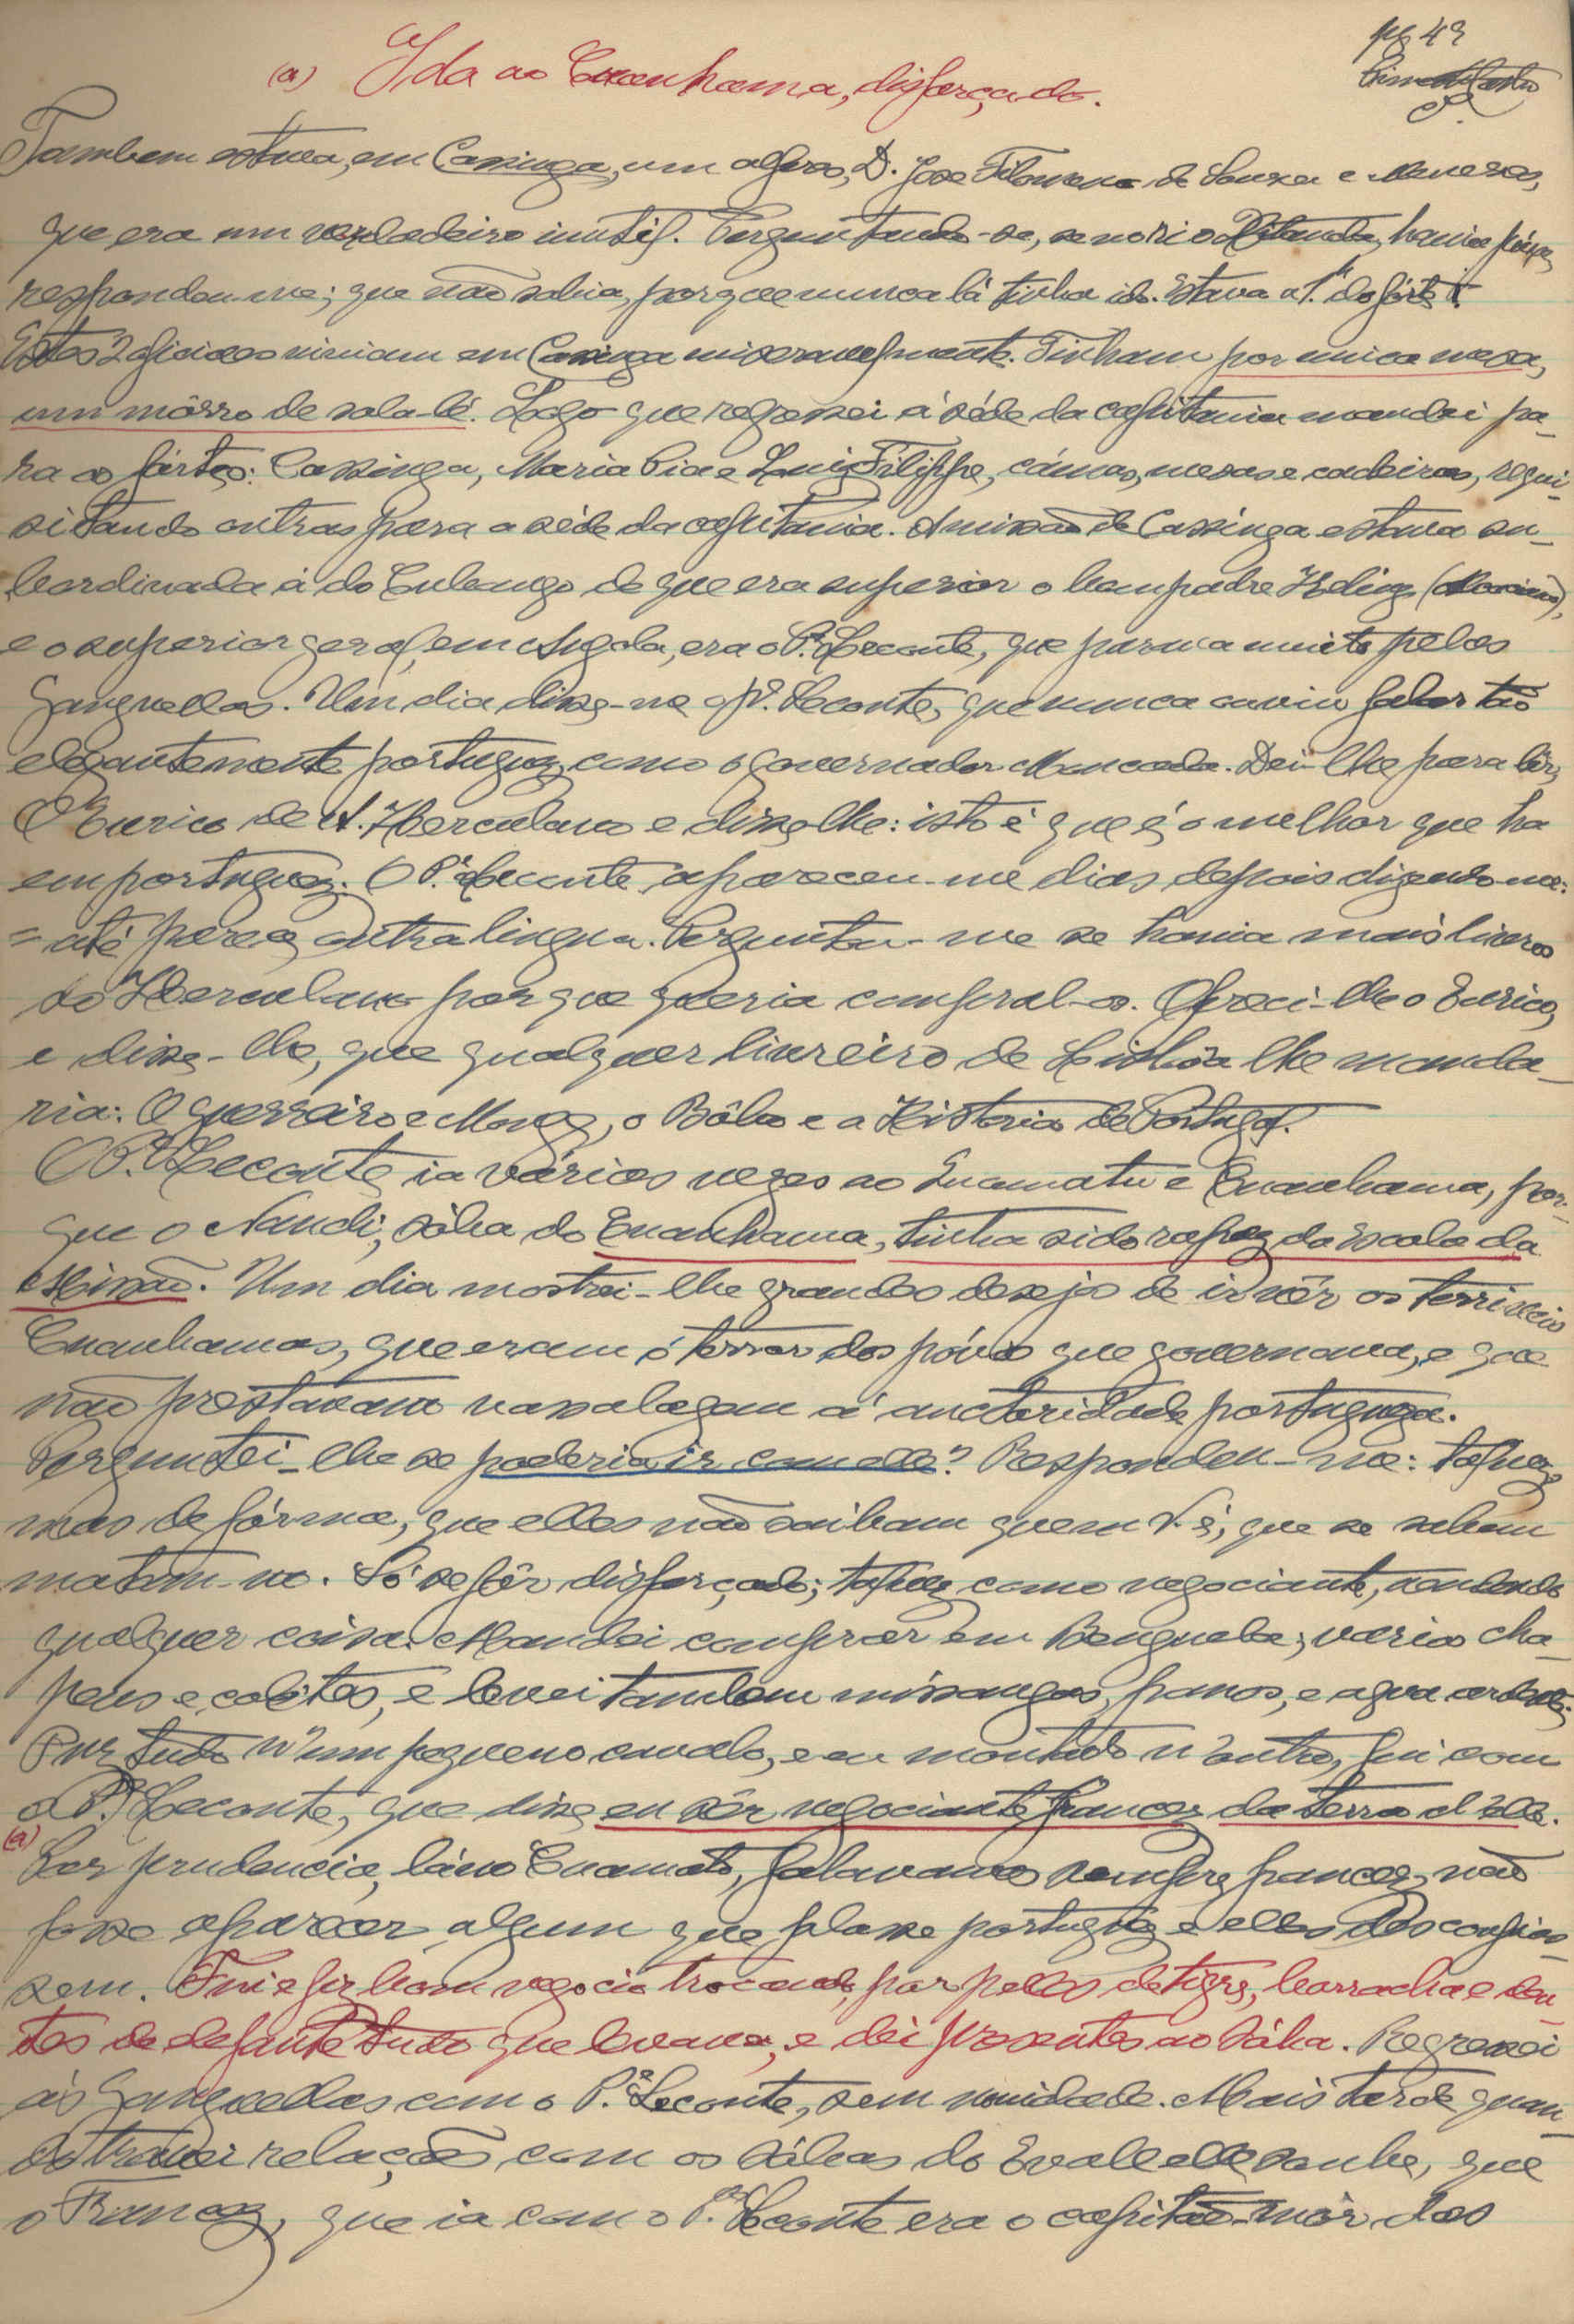 pg 43
(a) Ida ao Cuanhama, disfarçado.
Tambem estava, em Cassinga, um alferes, D. José Filomeno de Souza e Menezes,
que era um verdadeiro inutil. Perguntando-se, se no rio havia peixe,
respondeu-me; que não sabia, porque nunca lá tinha ido. Estava a 1.ª do forte!
Estes 2 oficiaes viviam em Cassinga miseravelmente. Tinham por unica mesa,
um môrro de sala-lé. Logo que regressei á séde da capitania mandei pa-
ra os fórtes: Cassinga, Maria Pia e Luiz Filippe, cámas, mesas e cadeiras, requi-
sitando outras para a séde da capitania. A missão de Cassinga estava su-
bordinada á do Cubango de que era superior o bom padre
e o superior geral, em Angola, era o P.e Lecomte, que parava muito pelos
Ganguellas. Um dia disse-me o P.e Lecomte, que nunca ouviu falar tão
elegantemente portuguez, como o governador Moncada. Dei-lhe para lêr,
O Eurico de A. Herculano e disse-lhe: isto é que é, o melhor que ha
em portuguez. O P.e Lecomte appareceu-me dias depois dizendo-me:
= até parece outra lingua. Perguntou-me se havia mais livros
do Herculano porque queria compral-os. Ofereci-lhe o Eurico,
e disse-lhe, que qualquer livreiro de Lisbôa lhe manda-
ria: O guerreiro e Monge, o Bôbo e a Historia de Portugal.
O P.e Lecomte ia várias vezes ao Cuamatu e Cuanhama, por-
que o Nandi, sóba do Cuanhama, tinha sido rapaz da escola da
Missão. Um dia mostrei-lhe grandes desejos de ir vêr os terriveis
Cuanhamas, que eram o terror dos póvos que governava, e que
não prestavam vassalagem á auctoridade portugueza.
Perguntei-lhe se poderia ir com elle? Respondeu-me: talvez,
mas de fórma, que elles não saibam quem V. é, que se sabem
matam-no. Só se fôr disfarçado; talvez como negociante, vendendo
qualquer coisa. Mandei comprar em Benguela; varios cha-
peus e coletes, e levei tambem missangas, panos, e agua ardente.
Puz tudo n'um pequeno cavalo, e eu montado n'outro, fui com
o P.e Lecomte, que disse eu sêr negociante francez da terra d'elle.
(a)
Por prudencia, lá no Cuamato, falavamos sempre francez, não
fosse aparecer algum que falasse portuguêz e elles desconfias-
sem. Fui e fiz bom negocio trocando, por pelles de tigre, borracha e den-
tes de elefante tudo que levava, e dei presentes ao sóba. Regressei
ás Ganguellas com o P.e Lecomte, sem novidade. Mais tarde quan-
do travei relações com os sóbas do Evale elle soube, que
o Francez, que ia com o P.e Lecomte era o capitão-mór dos